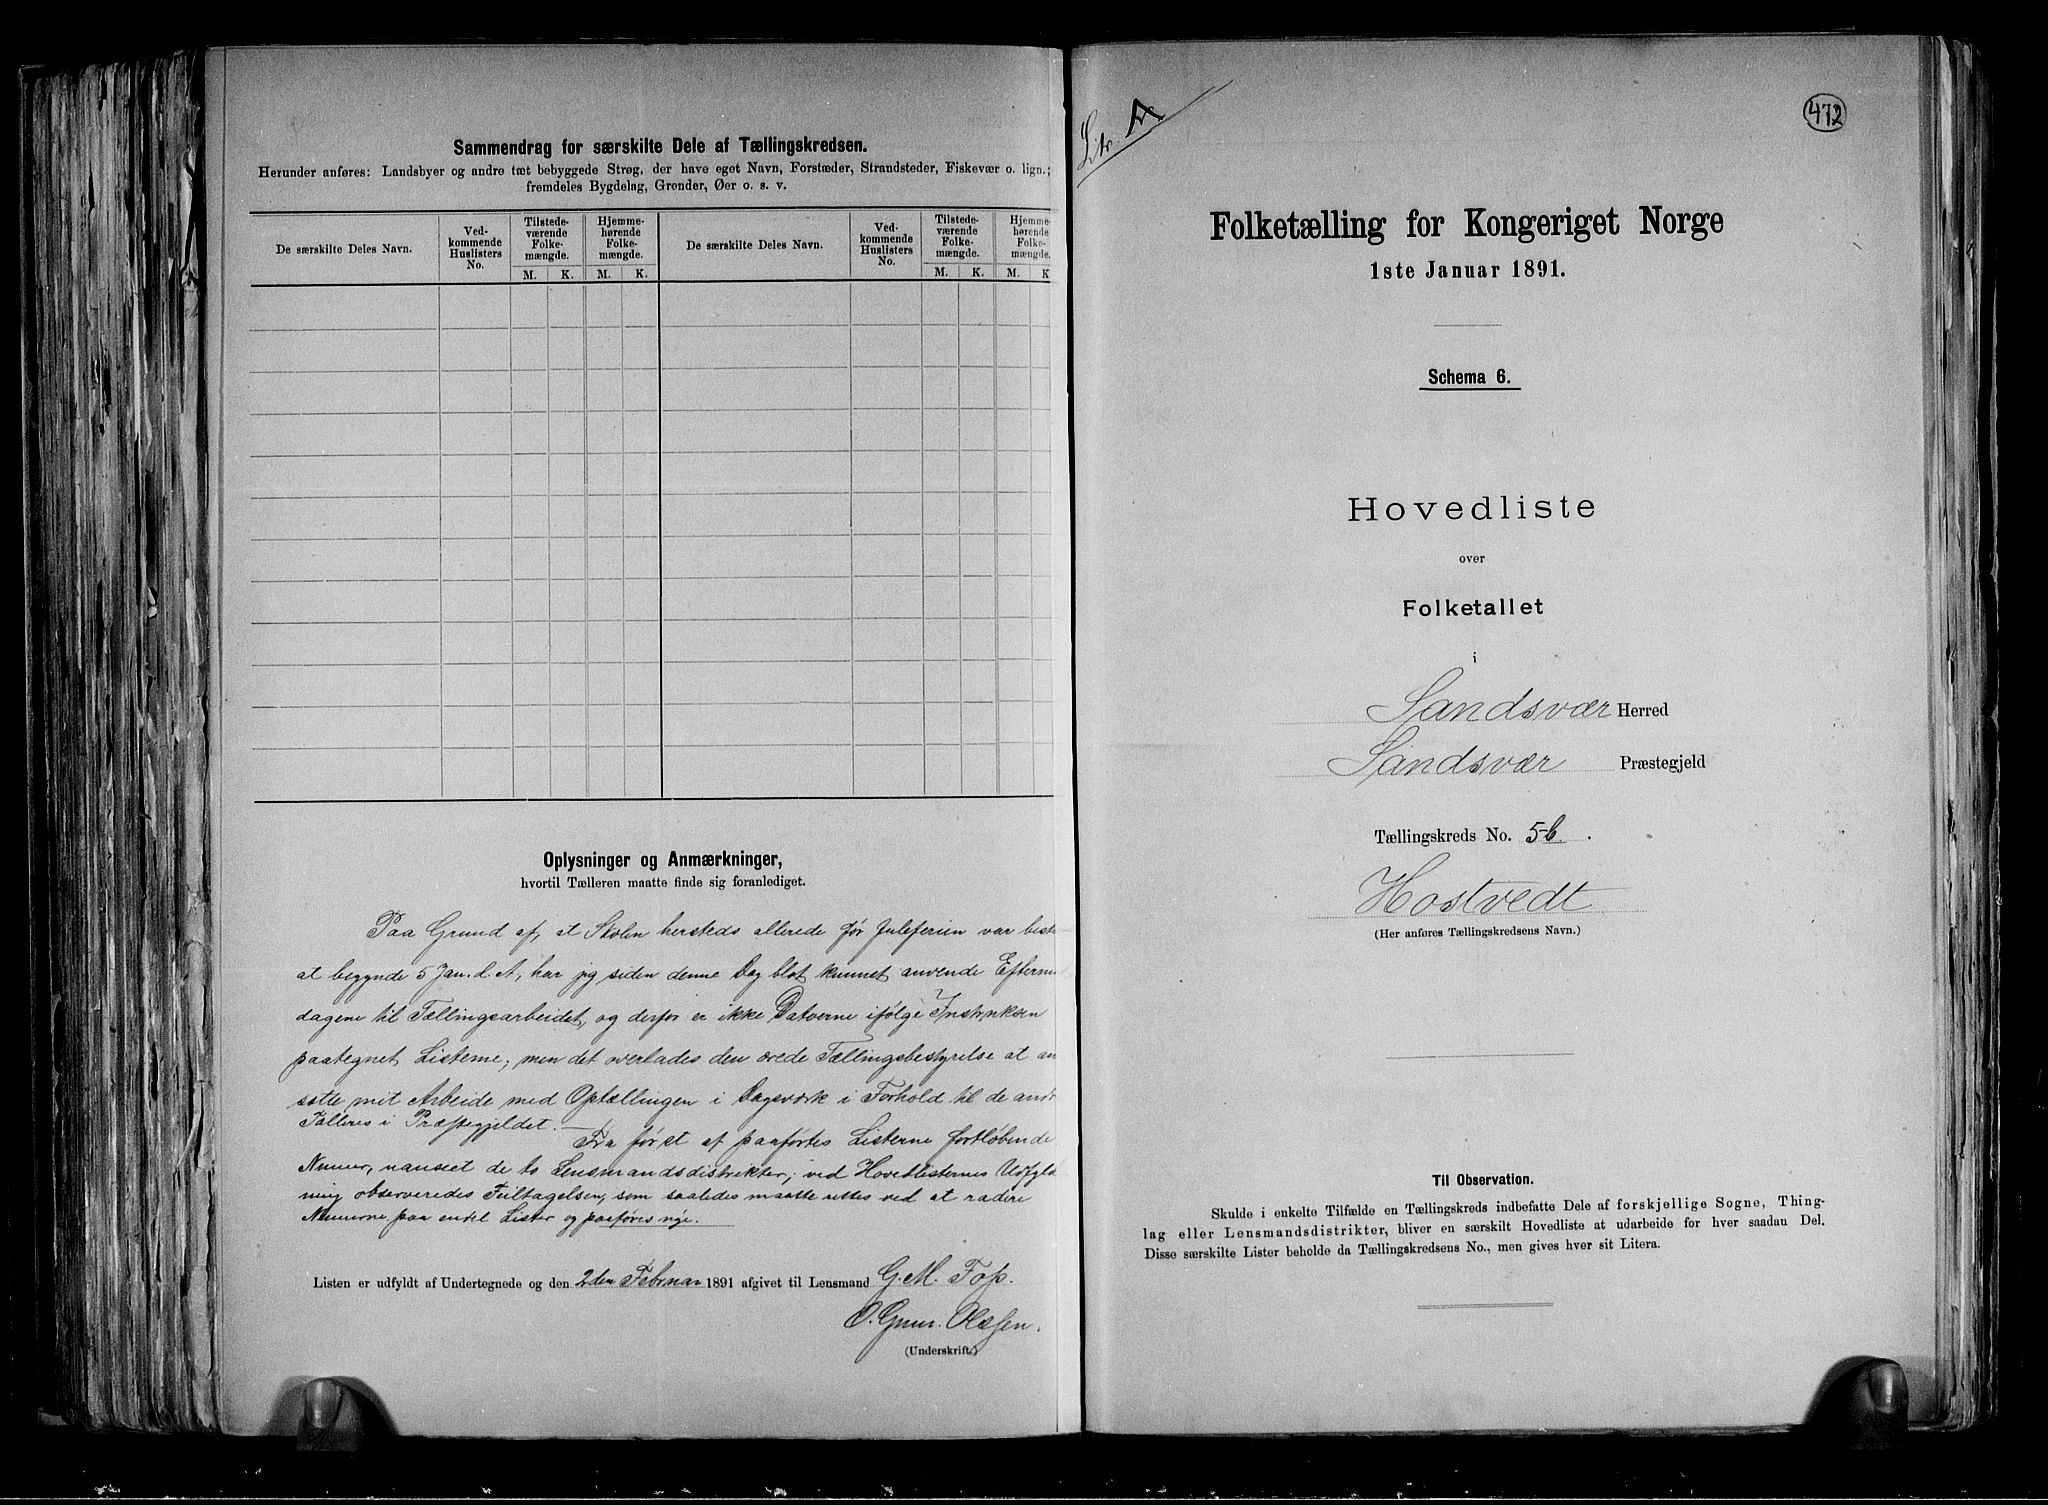 Sammendrag for særskilte Dele af Tællingskredsen.
Herunder anføres: Landsbyer og andre tæt bebyggede Strøg, der have eget Navn, Forstæder, Strandsteder, Fiskevær o. lign.;
fremdeles Bygdelag, Grender, Øer o. s. v.
De særskilte Deles Navn. Ved-kommende Huslisters No. Tilstede-værende Folke-mængde. Hjemme-hørende Folke-mængde. De særskilte Deles Navn. Ved-kommende Huslisters No. Tilstede-værende Folke-mængde. Hjemme-hørende Folke-mængde.
M. K. M. K. M. K. M. K
Oplysninger og Anmærkninger,
hvortil Tælleren maatte finde sig foranlediget.
Paa Grund af, at Skolen hersteds allerede før Juleferien var beste
at begynde 5 Jan. d. A, har jeg siden denne Dag blot kunnet anvende Efterm
dagene til Tællingsarbeidet, og derfor er ikke Datoerne ifølge Instruksen
paategnet Listerne; men det overlades den ærede Tællingsbestyrelse at an
sætte mit Arbeide med Optællingen i Dagsværk i Forhold til de andr
Tælleres i Præstegjeldet. —
Fra først af paaførtes Listerne fortløbende
Numer, uanseet de to Lensmandsdistrikter; ved Hovedlisternes Udfyld
ning observeredes Feiltagelsen, som saaledes maatte rettes ved at radere
Numerne paa endel Lister og paaføres nye.
Listen er udfyldt af Undertegnede og den 2den Februar 1891 afgivet til Lensmand G. M. Foss.
O. Gunn. Olassen.
(Underskrift.)
Litr. A
472
Folketælling for Kongeriget Norge
1ste Januar 1891.
Schema 6.
Hovedliste
over
Folketallet
i
Sandsvær Herred
Sandsvær Præstegjeld
Tællingskreds No. 5b.
Hostvedt
(Her anføres Tællingskredsens Navn.)
Til Observation.
Skulde i enkelte Tilfælde en Tællingskreds indbefatte Dele af forskjellige Sogne, Thing-
lag eller Lensmandsdistrikter, bliver en særskilt Hovedliste at udarbeide for hver saadan Del.
Disse særskilte Lister beholde da Tællingskredsens No., men gives hver sit Litera.